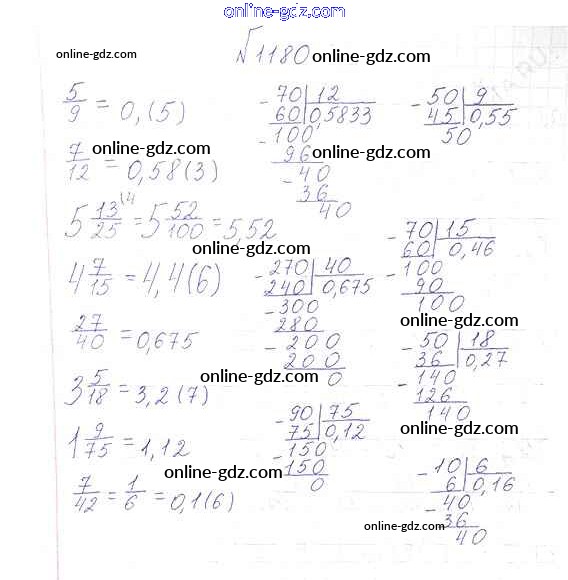 online-gdz.com
№1180
online-gdz.com
online-gdz.com
5/9 = 0,(5)
7/12 = 0,58(3)
5 13/25 = 5 52/100 = 5,52
4 7/15 = 4,4(6)
27/40 = 0,675
3 5/18 = 3,2(7)
1 9/75 = 1,12
7/42 = 1/6 = 0,1(6)
70 | 12
60 | 0,5833
-100
96
-40
36
40
-50 | 9
45 | 0,55
50
online-gdz.com
online-gdz.com
online-gdz.com
online-gdz.com
-270 | 40
240 | 0,675
-300
280
-200
200
0
-70 | 15
60 | 0,46
-100
90
100
online-gdz.com
online-gdz.com
online-gdz.com
-50 | 18
36 | 0,27
-140
126
140
online-gdz.com
-90 | 75
75 | 0,12
-150
150
0
online-gdz.com
online-gdz.com
online-gdz.com
-10 | 6
6 | 0,16
-40
36
40
online-gdz.com